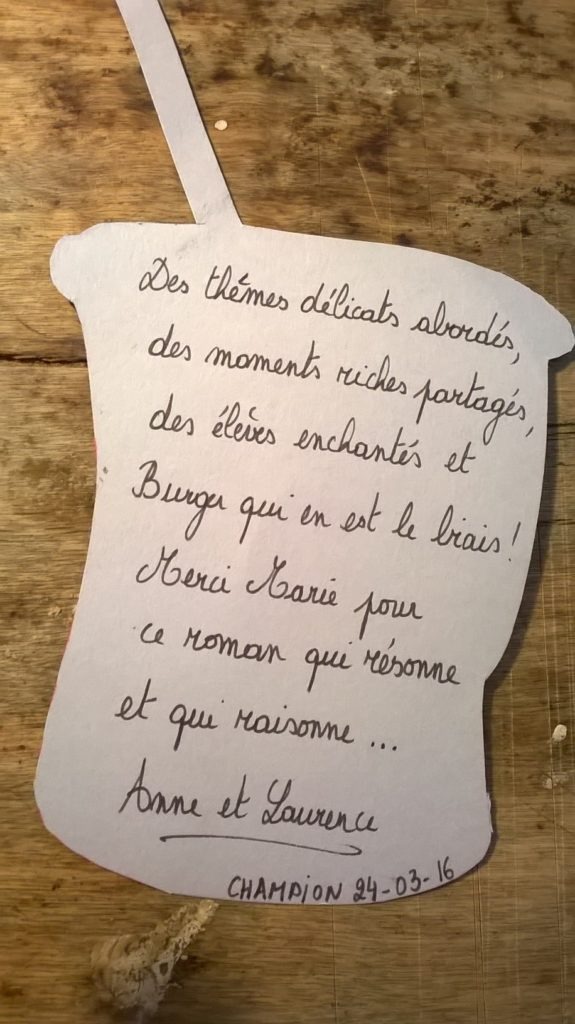 Des thèmes délicats abordés,
des moments riches partagés,
des élèves enchantés et
Burger qui en est le biais !
Merci Marie pour
ce roman qui résonne
et qui raisonne ...
Anne et Laurence
CHAMPION 24-03-16